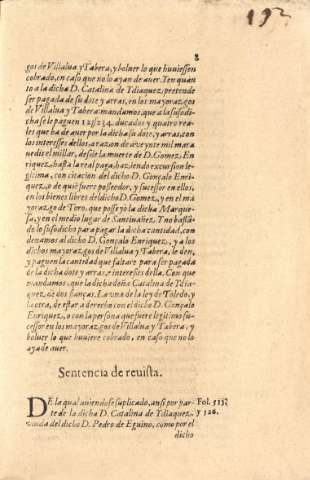 192
8
gos de Villalua y Tabera, y boluer lo que huuiessen
cobrado, en caso que no lo ayan de auer. Y en quan
to a la dicha D. Catalina de Ydiaquez, pretende
ser pagada de su dote y arras, en los mayorazgos
de Villalua y Tabera: mandamos, que a la susodi-
cha se le paguen ducados y quatro rea-
les que ha de auer por la dicha su dote, y arras, con
los intereses dellos, a razon de a veynte mil mara
uedis el millar, desde la muerte de D. Gomez En
riquez, hasta la real paga, haziendo excussion le-
gitima, con citacion del dicho D. Gonçalo Enri-
quez, o de quie fuere posseedor, y sucessor en ellos,
en los bienes libres del dicho D. Gomez, y en el ma
yorazgo de Toro, que posseyò la dicha Marque-
sa, y en el medio lugar de Santiuañez. Y no bastā-
do lo susodicho para pagar la dicha cantidad, con
denamos al dicho D. Gonçalo Enriquez, y a los
dichos mayorazgos de Villalua y Tabera, le den,
y paguen la cantidad que faltare para ser pagada
de la dicha dote y arras, e intereses della. Con que
mandamos que la dicha doña Catalina de Ydia-
quez, dè dos fianças. La vna de la ley de Toledo, y
la otra, de estar a derecho con el dicho D. Gonçalo
Enriquez, o con la persona que fuere legitimo su-
cessor en los mayorazgos de Villalua y Tabera, y
boluer lo que huuiere cobrado, en caso que no lo
aya de auer.
Sentencia de reuista.
De la qual auiendose suplicado, ansi por par-
te de la dicha D. Catalina de Ydiaquez,
viuda del dicho D. Pedro de Eguino, como por el
dicho
Fol.
y 526.